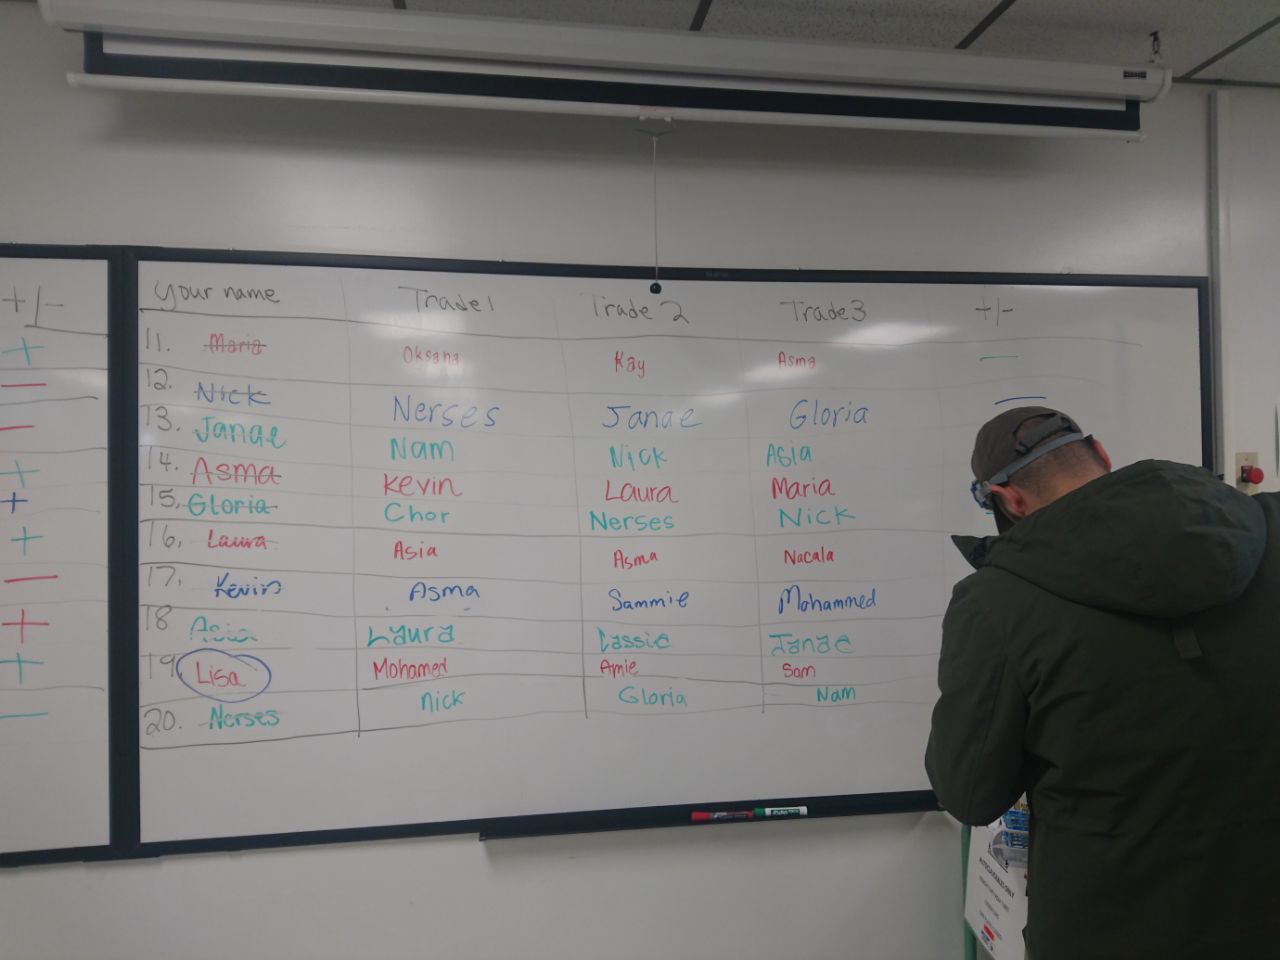 +/-
+
—
—
+
+
+
—
+
+
—
Your name Trade1 Trade 2 Trade3 +/-
11. Maria Oksana Kay Asma —
12. Nick Nerses Janae Gloria —
13. Janae Nam Nick Asia
14. Asma Kevin Laura Maria
15. Gloria Chor Nerses Nick
16. Laura Asia Asma Nacala
17. Kevin Asma Sammie Mohammed
18 Asia Laura Cassie Janae
19 Lisa Mohamed Amie Sam
20. Nerses Nick Gloria Nam
AUTOCLAVABLES ONLY